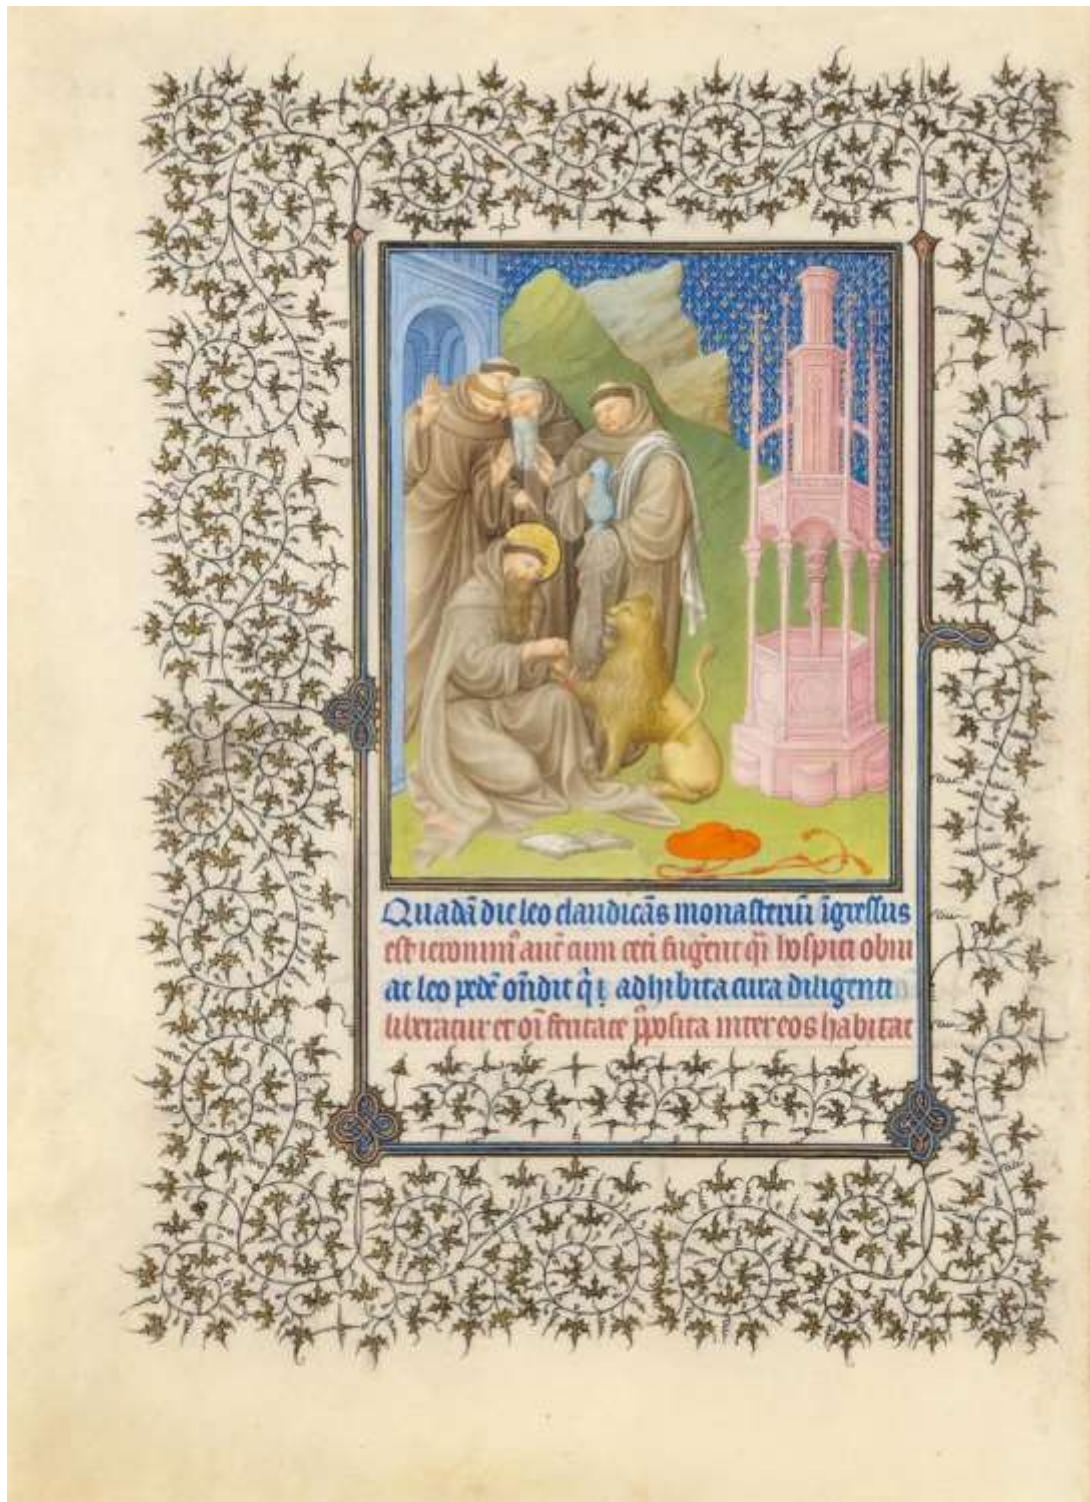 Quadā die leo claudicās monasteriū īgressus
est ieronimꝰ aut̄ cum cet̄i fug̃ent q̄i hospiti obiu
at leo pedē oñdit q̇ ɩ adhibita cura diligenti
liberatur et oī feritate p̄posita inter eos habitat